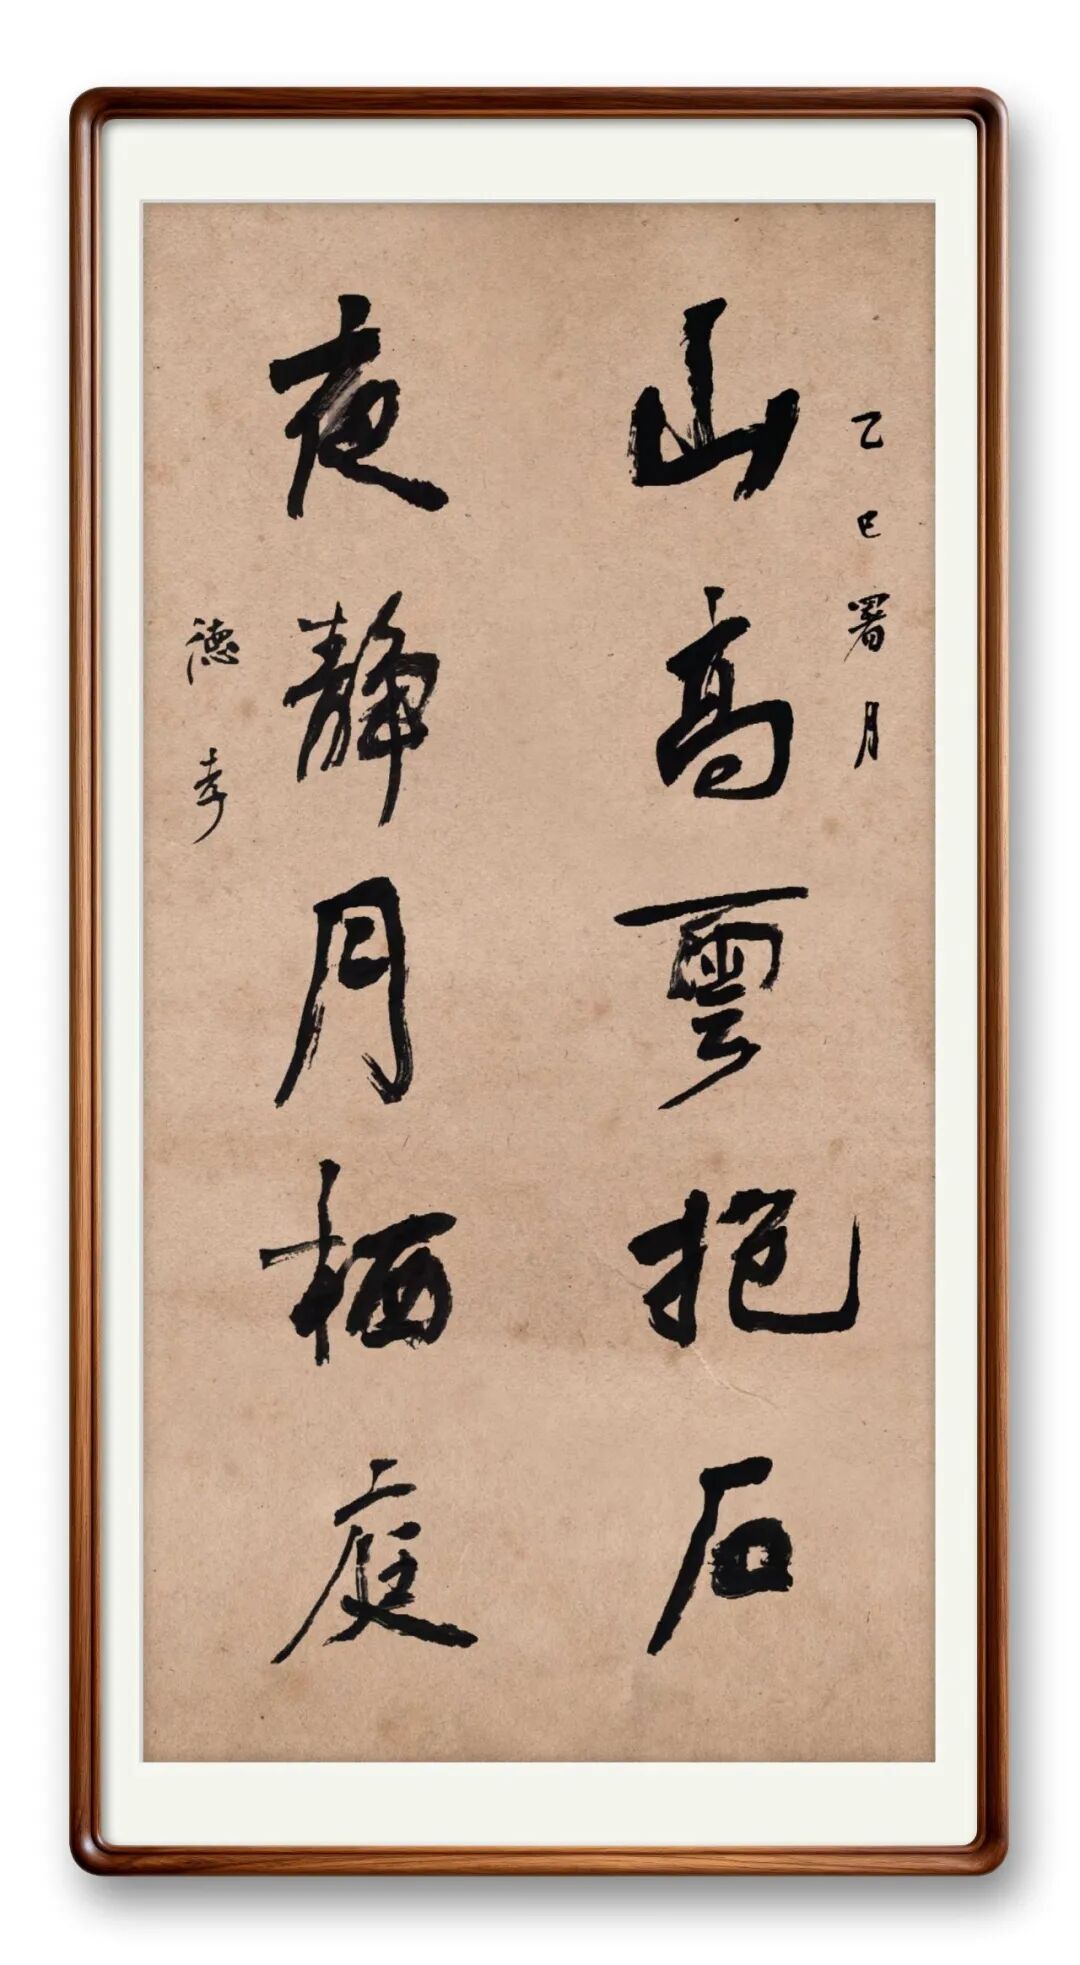 乙巳署月
山高雲抱石
夜静月栖庭
德孝